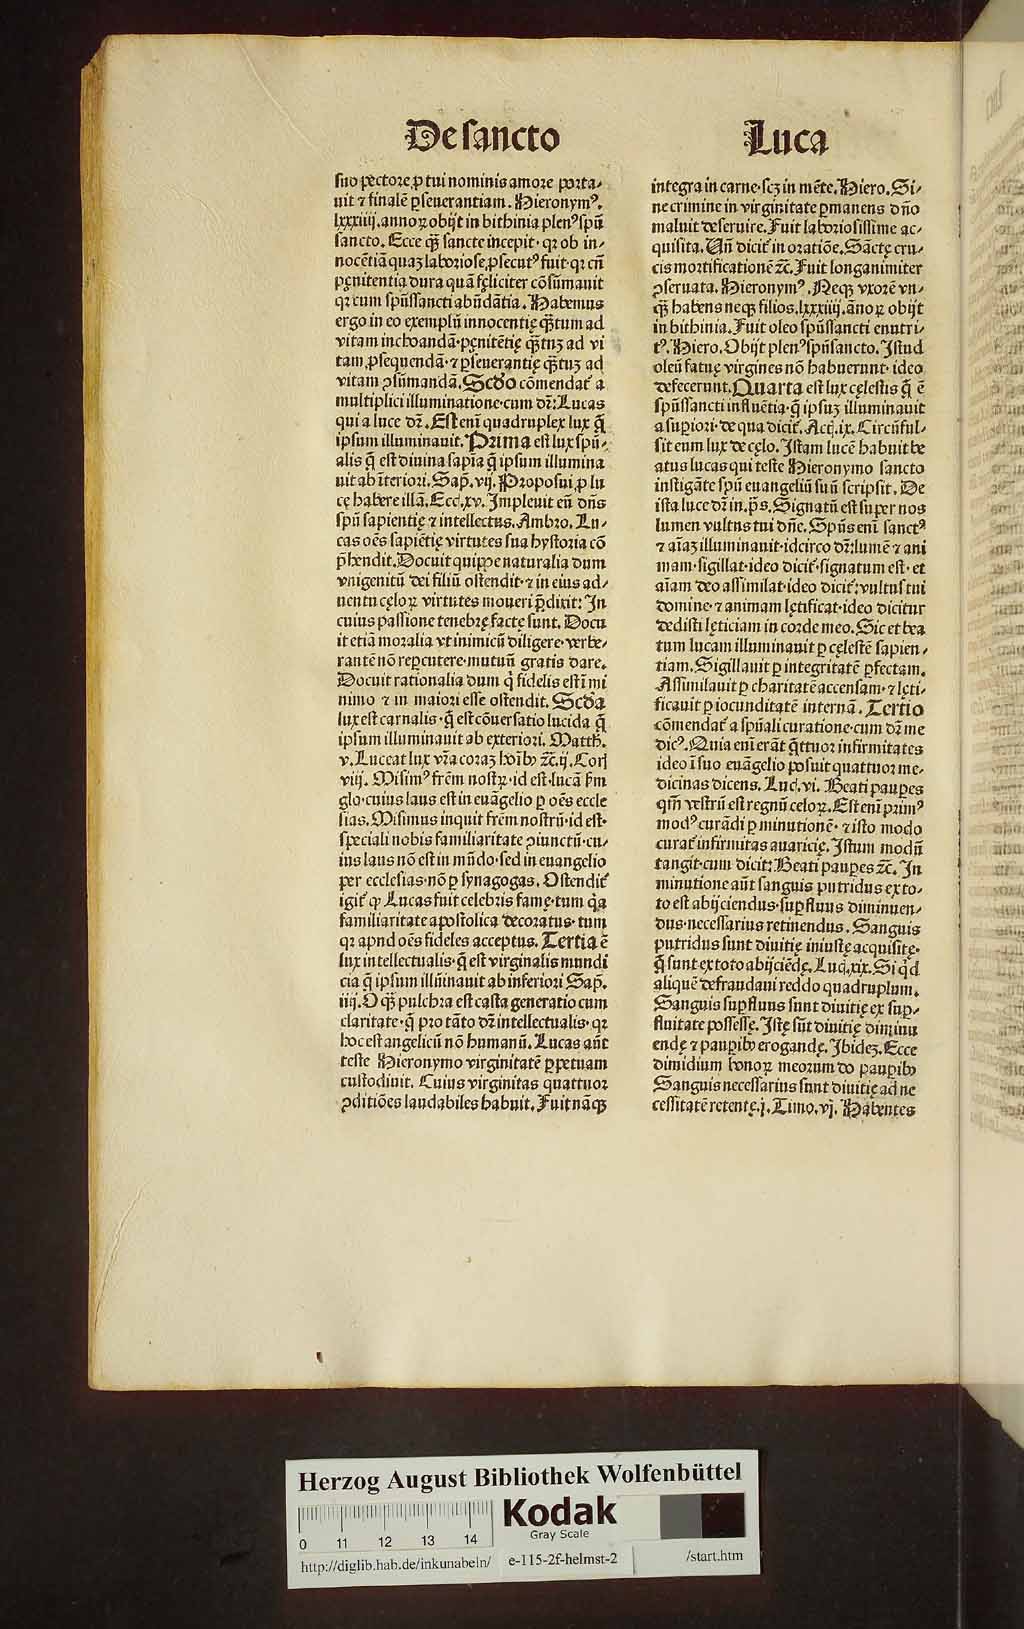 De sancto
Luca
suo pectore ꝓ tui nominis amore porta⸗
uit ⁊ finalē ꝑseuerantiam. Hieronymꝰ.
lxxxiiij. annoꝝ obijt in bithinia plenꝰ spū
sancto. Ecce qꝫ sancte incepit· qꝛ ob in⸗
nocētiā quaꝫ laboriose ꝓsecutꝰ fuit· qꝛ cū
pęnitentia dura quā fęliciter cōsūmauit
qꝛ cum spūssancti abūdātia. Habemus
ergo in eo exemplū innocentię qꝫtum ad
vitam inchoandā· pęnitētię qꝫtuꝫ ad vi
tam ꝓsequendā· ⁊ ꝑseuerantię qꝫtuꝫ ad
vitam ꝯsūmandā. Scd̄o cōmendat̄ a
multiplici illuminatione· cum dr̄: Lucas
qui a luce dr̄. Est eni quadruplex lux q̄
ipsum illuminauit. Prima est lux spū⸗
alis q̄ est diuina sapīa q̄ ipsum illumina
uit ab īteriori. Sap̄. vij. Proposui ꝓ lu
cę habere illā. Ecc̄. xv. Impleuit eū dn̄s
spū sapientię ⁊ intellectus. Ambro. Lu⸗
cas oēs sapiētię virtutes sua hystoria cō
p̄hendit. Docuit quippe naturalia dum
vnigenitū dei filiū ostendit· ⁊ in eius ad⸗
uentu cęloꝝ virtutes moueri p̄dixit: In
cuius passione tenebrę factę sunt. Docu
it etiā moralia vt inimicū diligere· verbe⸗
rantē nō reꝑcutere· mutuū gratis dare.
Docuit rationalia dum q̇ fidelis est ī mi
nimo ⁊ in maiori esse ostendit. Scd̄a
lux est carnalis· q̄ est cōuersatio lucida q̄
ipsum illuminauit ab exteriori. Matth̄.
v. Luceat lux vr̄a coraꝫ hoībꝰ ⁊c̄. ij. Corī
viij. Misimꝰ frēm nostꝝ· id est· lucā ī em
glo· cuius laus est in euāgelio ꝑ oēs eccle
sias. Misimus inquit frēm nostrū· id est·
speciali nobis familiaritate ꝯiunctū· cu⸗
ius laus nō est in mūdo· sed in euangelio
per ecclesias· nō ꝑ synagogas. Ostendit̄
igit̄ ꝙ Lucas fuit celebris famę· tum q̄a
familiaritate apostolica decoratus· tum
qꝛ apud oēs fideles acceptus. Tertia ē
lux intellectualis· q̄ est virginalis mundi
cia q̄ ipsum illūinauit ab inferiori Sap̄.
iiij. O qꝫ pulchra est casta generatio cum
claritate· q̄ pro tāto dr̄ intellectualis· qꝛ
hoc est angelicū nō humanū. Lucas aūt
teste Hieronymo virginitatē ꝑpetuam
custodiuit. Cuius virginitas quattuor
ꝯditiōes laudabiles habuit. Fuit nāqꝫ
integra in carne· scꝫ in mēte. Hiero. Si⸗
ne crimine in virginitate ꝑmanens dn̄o
maluit deseruire. Fuit laboriosissime ac⸗
quisita. Vn̄ dicit̄ in oratiōe. Sāctę cru⸗
cis mortificationē ⁊c̄. Fuit longanimiter
ꝯseruata. Hieronymꝰ. Neqꝫ vxorē vn⸗
qꝫ habens neqꝫ filios. lxxxiiij. ānoꝝ obijt
in bithinia. Fuit oleo spūssancti enutri⸗
tꝰ. Hiero. Obijt plenꝰ spūsancto. Istud
oleū fatuę virgines nō habuerunt· ideo
defecerunt. Quarta est lux cęlestis q̄ ē
spūssancti influētia· q̄ ipsuꝫ illuminauit
a suꝑiori· de qua dicit̄. Act̄. ix. Circūful⸗
sit eum lux de cęlo. Istam lucē habuit be
atus lucas qui teste Hieronymo sancto
instigāte spū euangeliū suū scripsit. De
ista luce dr̄ in. p̄s. Signatū est super nos
lumen vultus tui dn̄e. Spūs eni sanctꝰ
⁊ aīaꝫ illuminauit· idcirco dr̄: lumē ⁊ ani
mam· sigillat· ideo dicit̄· signatum est· et
aīam deo assimilat· ideo dicit̄: vultus tui
domine· ⁊ animam lętificat· ideo dicitur
dedisti lęticiam in corde meo. Sic et bea
tum lucam illuminauit ꝑ cęlestē sapien⸗
tiam. Sigillauit ꝑ integritatē ꝑfectam.
Assimilauit ꝑ charitatē accensam· ⁊ lęti⸗
ficauit ꝑ iocunditatē internā. Tertio
cōmendat̄ a spūali curatione· cum dr̄ me
dicꝰ. Quia eni erāt q̄ttuor infirmitates
ideo ī suo euāgelio posuit quattuor me⸗
dicinas dicens. Luc̄. vi. Beati pauꝑes
qm̄ vestrū est regnū celoꝝ. Est eni primꝰ
modꝰ curādi ꝑ minutionē· ⁊ isto modo
curat̄ infirmitas auaricię. Istum modū
tangit· cum dicit: Beati pauꝑes ⁊c̄. In
minutione aūt sanguis putridus ex to⸗
to est abijciendus· suꝑfluus diminuen⸗
dus· necessarius retinendus. Sanguis
putridus sunt diuitię iniustę acquisitę·
q̄ sunt ex toto abijciēdę. Luc̄. xix. Si q̇d
aliquē defraudaui reddo quadruplum.
Sanguis suꝑfluus sunt diuitię ex suꝑ⸗
fluitate possessę. Istę sūt diuitię diminu
endę ⁊ pauꝑibꝰ erogandę. Ibideꝫ. Ecce
dimidium bonoꝝ meorum do pauꝑibꝰ
Sanguis necessarius sunt diuitię ad ne
cessitatē retentę. j. Timo. vj. Habentes
Herzog August Bibliothek Wolfenbüttel
Kodak
Gray Scale
0 11 12 13 14
http://diglib.hab.de/inkunabeln/ e-115-2f-helmst-2 /start.htm